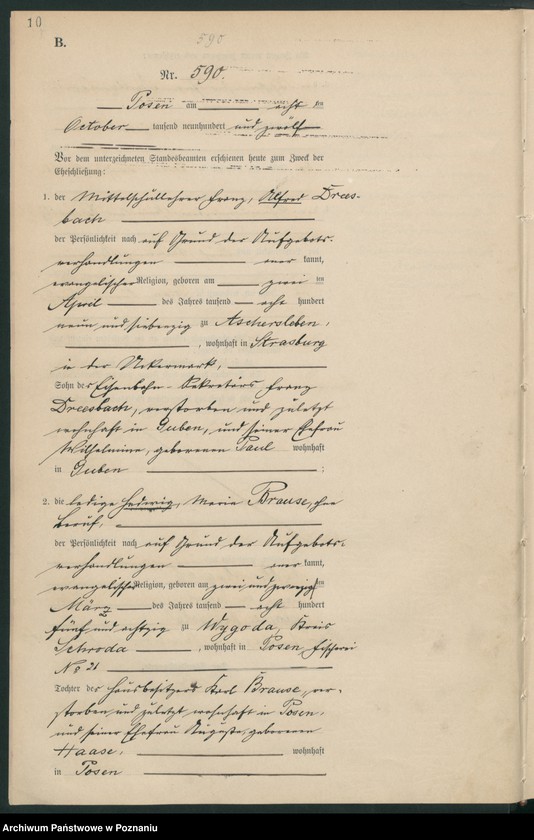 10
590
B.
Nr. 590.
Posen am acht ten
October tausend neunhundert und zwölf
Vor dem unterzeichneten Standesbeamten erschienen heute zum Zweck der
Eheschließung:
1. der Mittelschullehrer Franz, Alfred Drees-
bach
der Persönlichkeit nach auf Grund des Aufgebots-
verhandlungen aner kannt,
evangelischer Religion, geboren am zwei ten
April des Jahres tausend acht hundert
neun und siebenzig zu Aschersleben,
, wohnhaft in Strasburg
in der Uckermark,
Sohn des Eisenbahn-Sekretärs Franz
Dreesbach, verstorben und zuletzt
wohnhaft in Guben, und seiner Ehefrau
Wilhelmine, geborenen Paul wohnhaft
in Guben ;
2. die ledige Hedwig, Maria Brause, ohne
Beruf,
der Persönlichkeit nach auf Grund der Aufgebots-
verhandlungen aner kannt,
evangelischer Religion, geboren am zwei und zwanzig ten
März des Jahres tausend acht hundert
fünf und achtzig zu Wygoda, Kreis
Schroda , wohnhaft in Posen,
No 21
Tochter des Hausbesitzers Karl Brause, ver-
storben und zuletzt wohnhaft in Posen,
und seiner Ehefrau Auguste, geborenen
Haase, wohnhaft
in Posen
Archiwum Państwowe w Poznaniu